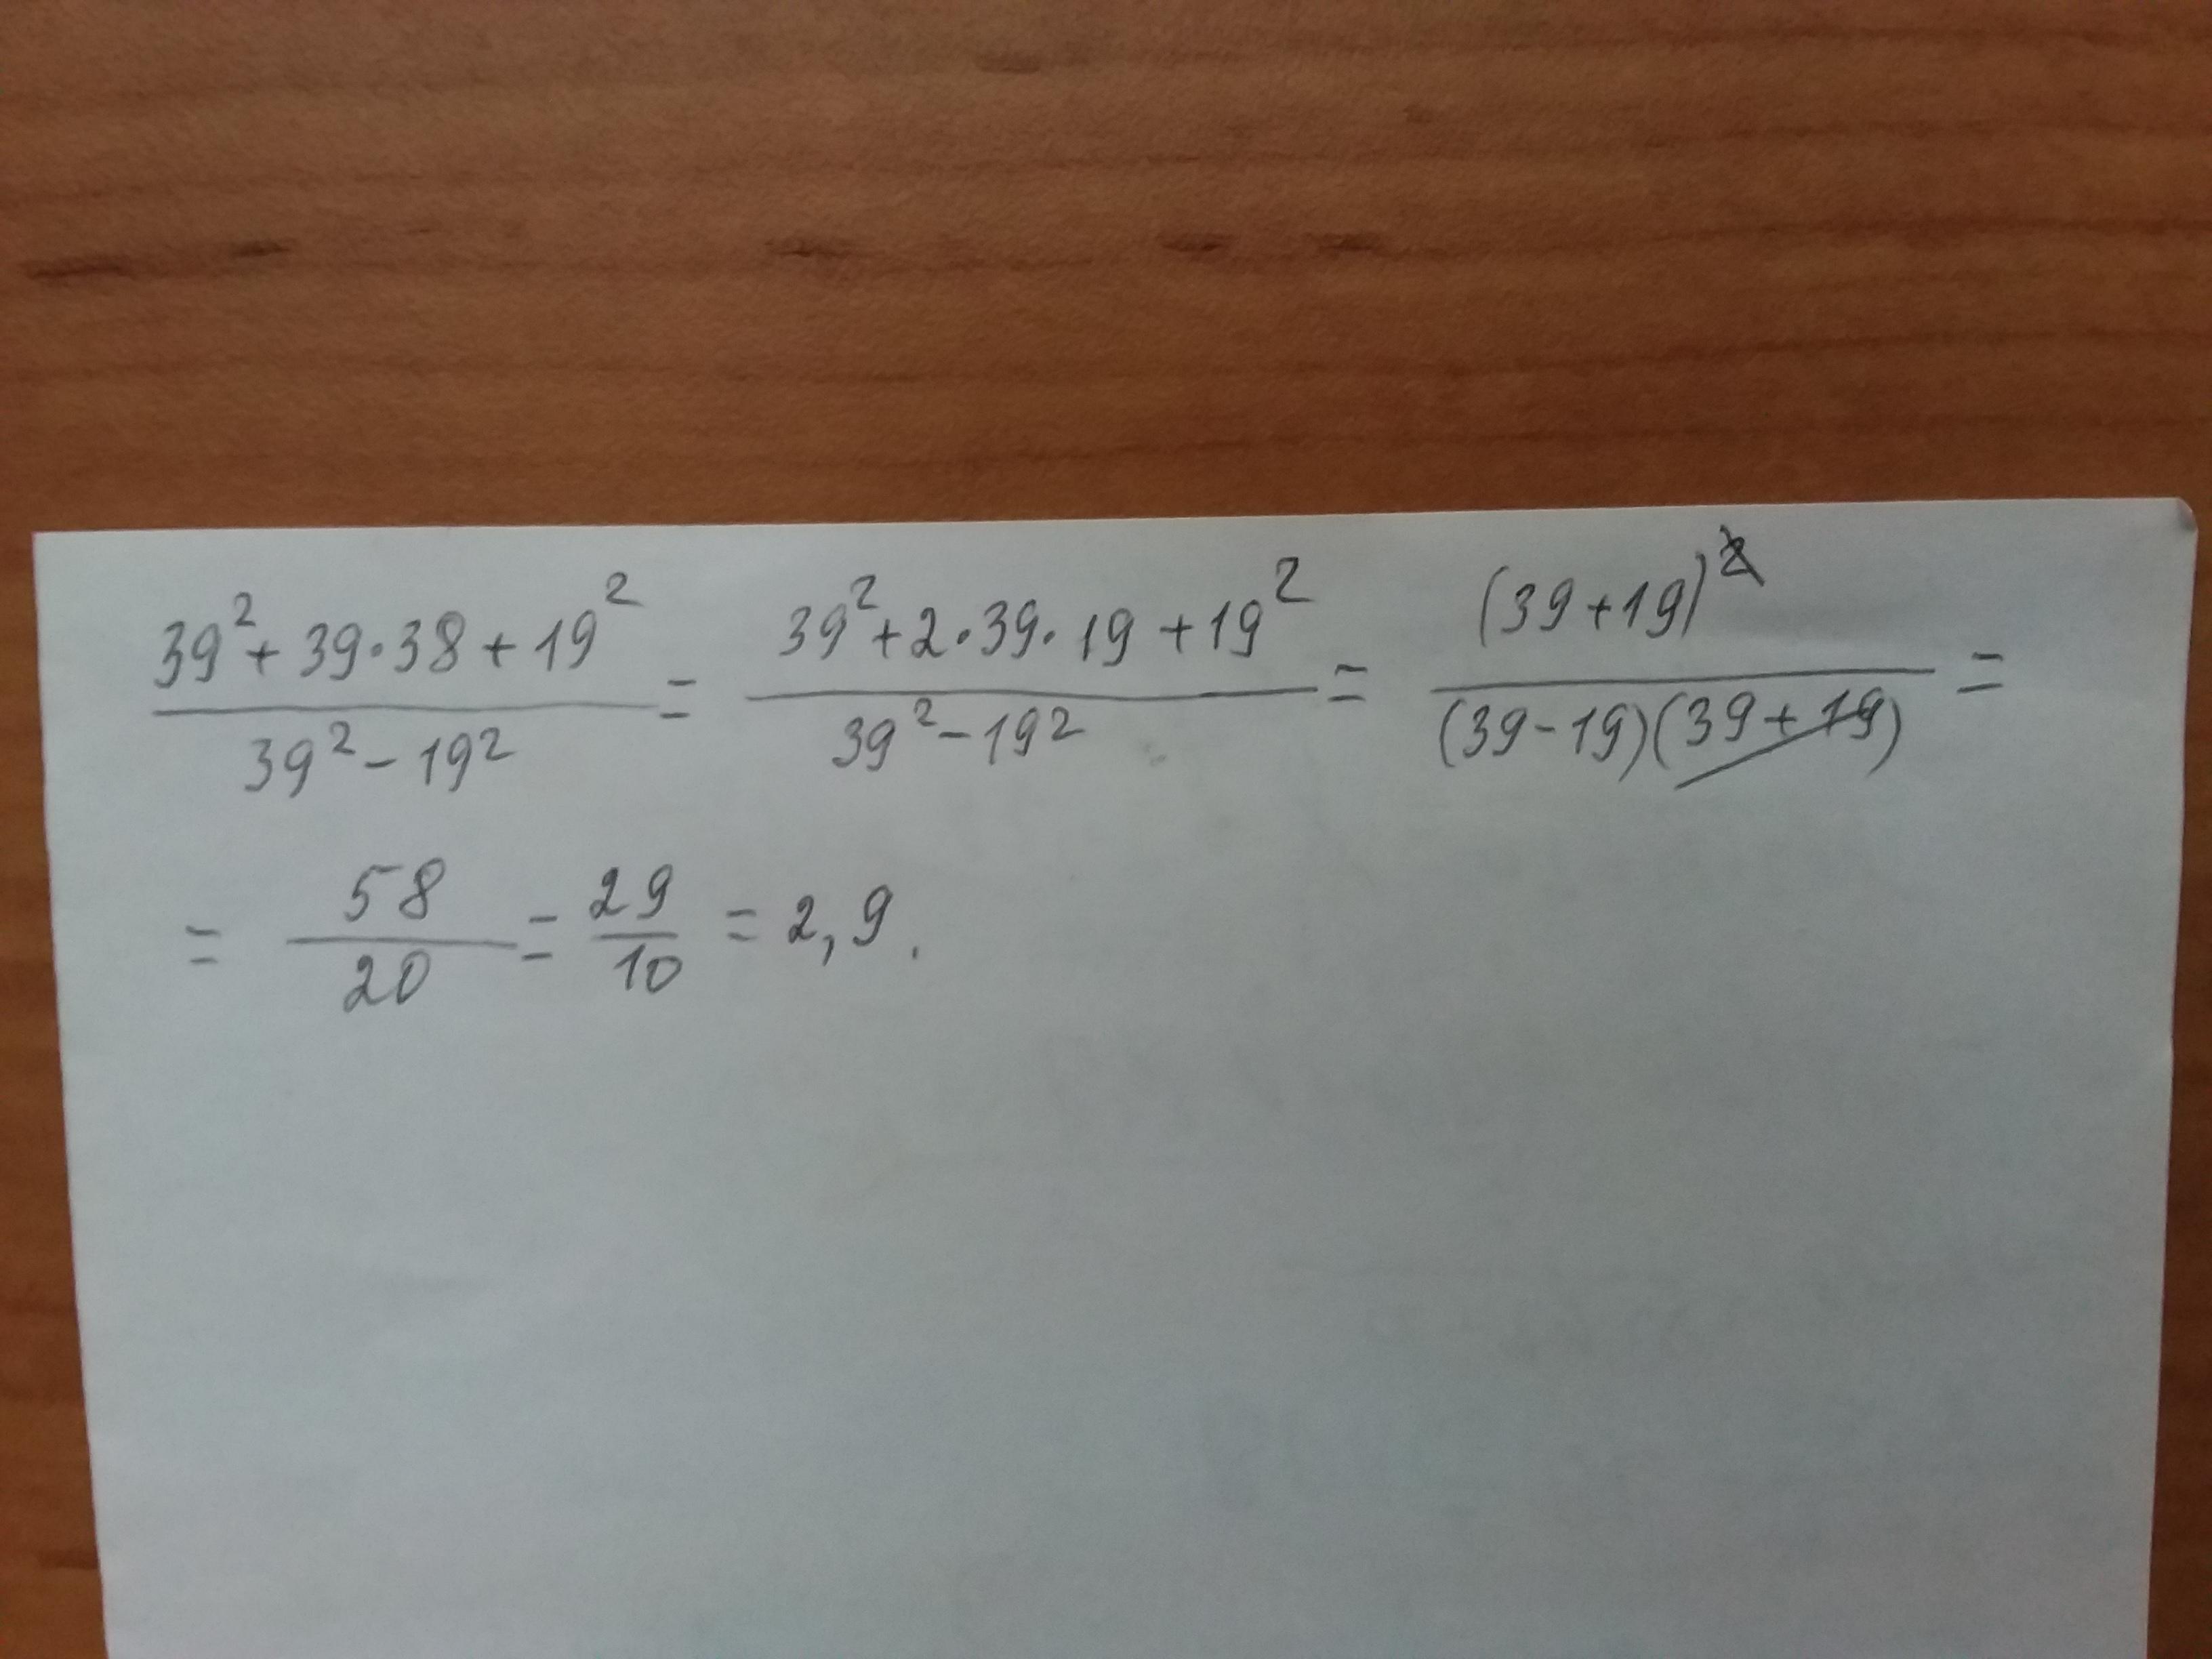 (39² + 39·38 + 19²)/(39² - 19²) = (39² + 2·39·19 + 19²)/(39² - 19²) = (39 + 19)²/((39 - 19)(39 + 19)) =
= 58/20 = 29/10 = 2,9.